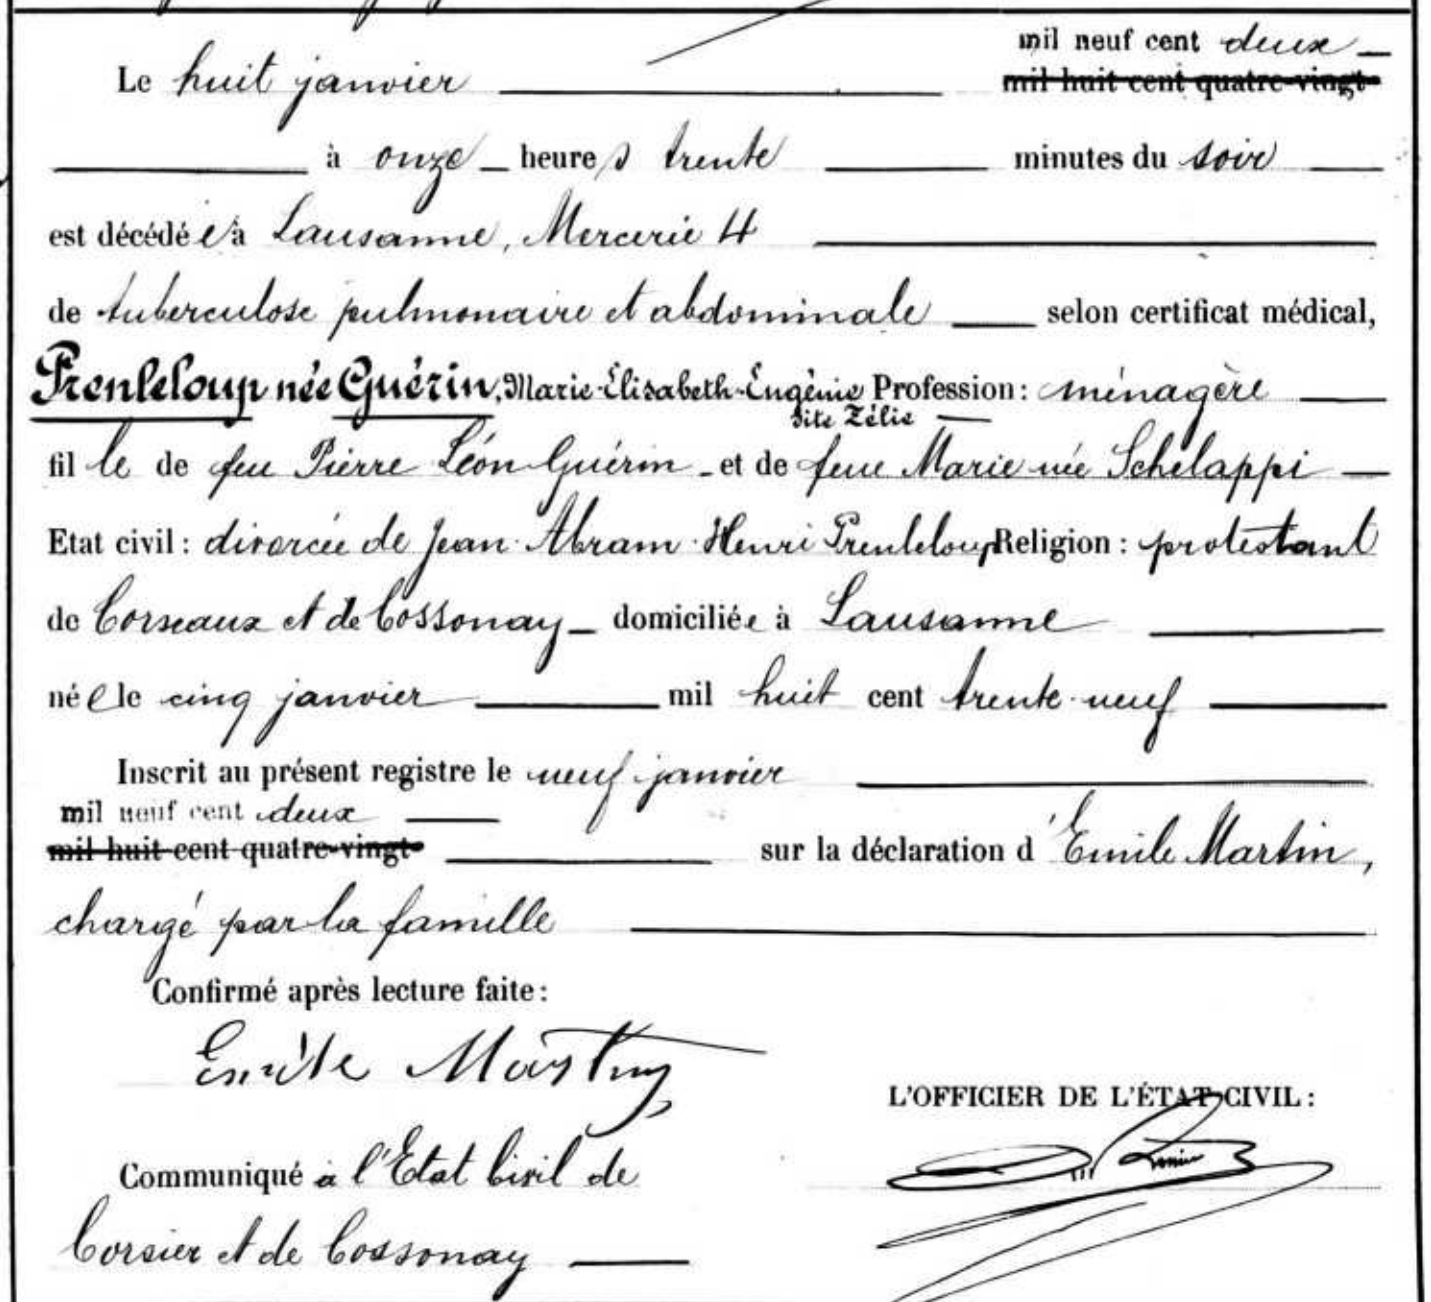 mil neuf cent deux
Le huit janvier mil huit cent quatre-vingt
à onze heures trente minutes du soir
est décédée à Lausanne, Mercerie 4
de tuberculose pulmonaire et abdominale selon certificat médical,
Prenleloup née Guérin, Marie-Élisabeth-Eugénie Profession : ménagère
dite Zélie
fille de feu Pierre Léon Guérin et de feue Marie née Schelappi
Etat civil : divorcée de Jean-Abram-Henri Prenleloup Religion : protestant
de Corseaux et de Cossonay domiciliée à Lausanne
née le cinq janvier mil huit cent trente-neuf
Inscrit au présent registre le neuf janvier
mil neuf cent deux
mil huit cent quatre-vingt sur la déclaration d'Emile Martin,
chargé par la famille
Confirmé après lecture faite :
Emile Martin
L'OFFICIER DE L'ÉTAT CIVIL :
Communiqué à l'Etat Civil de
Corsier et de Cossonay